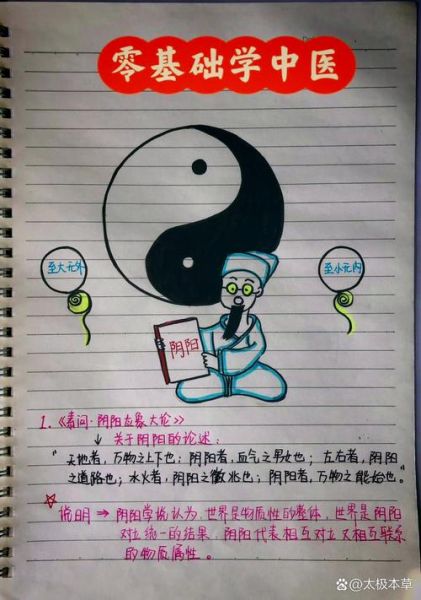 零基础学中医
至大无外
至小无内
阴阳
1.《素问·阴阳应象大论》
↓ 关于阴阳的论述：
"天地者，万物之上下也；阴阳者，血气之男女也；左右者，阴阳
之道路也；水火者，阴阳之徵兆也；阴阳者，万物之能始也。"
☆
说明 → 阴阳学说认为，世界是物质性的整体，世界是阴阳
对立统一的结果，阴阳代表相互对立又相互联系
的物质属性。
太极本草